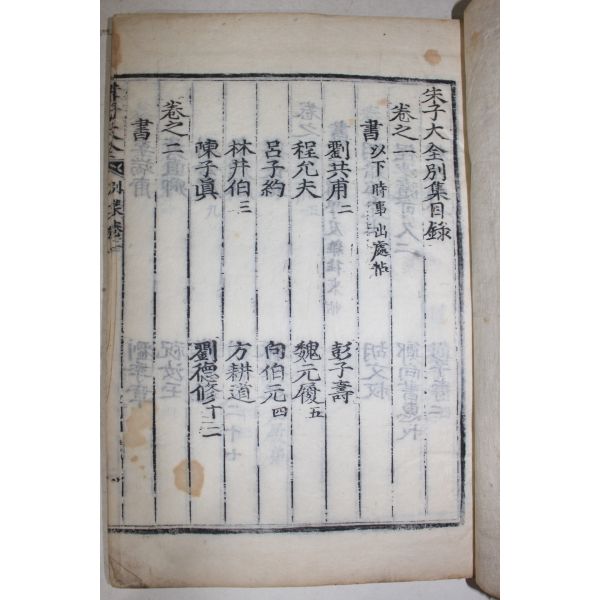 朱子大全別集目錄
卷之一
書 以下時事出處帖
劉共甫二 彭子壽
程允夫 魏元履五
呂子約 向伯元四
林井伯三 方耕道
陳子眞 劉德修十二
卷之二
書